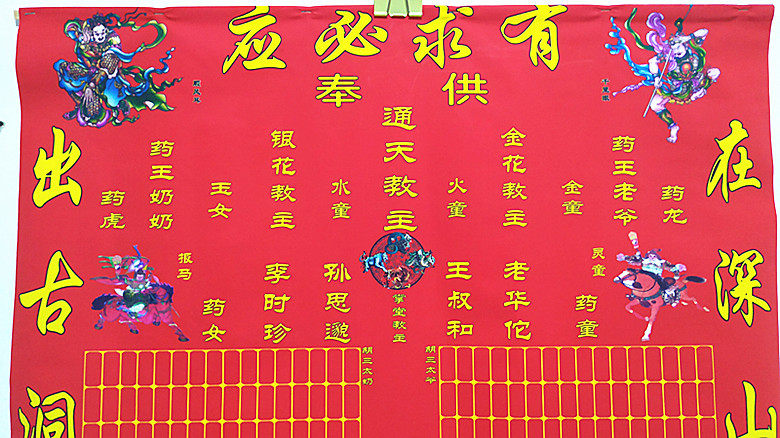 有求必应
供奉
在深山
药龙
药王老爷
金童
金花教主
火童
通天教主
水童
银花教主
玉女
药王奶奶
药虎
出古洞
灵童
药童
老华佗
王叔和
掌堂教主
孙思邈
李时珍
药女
报马
胡三太爷
胡三太奶